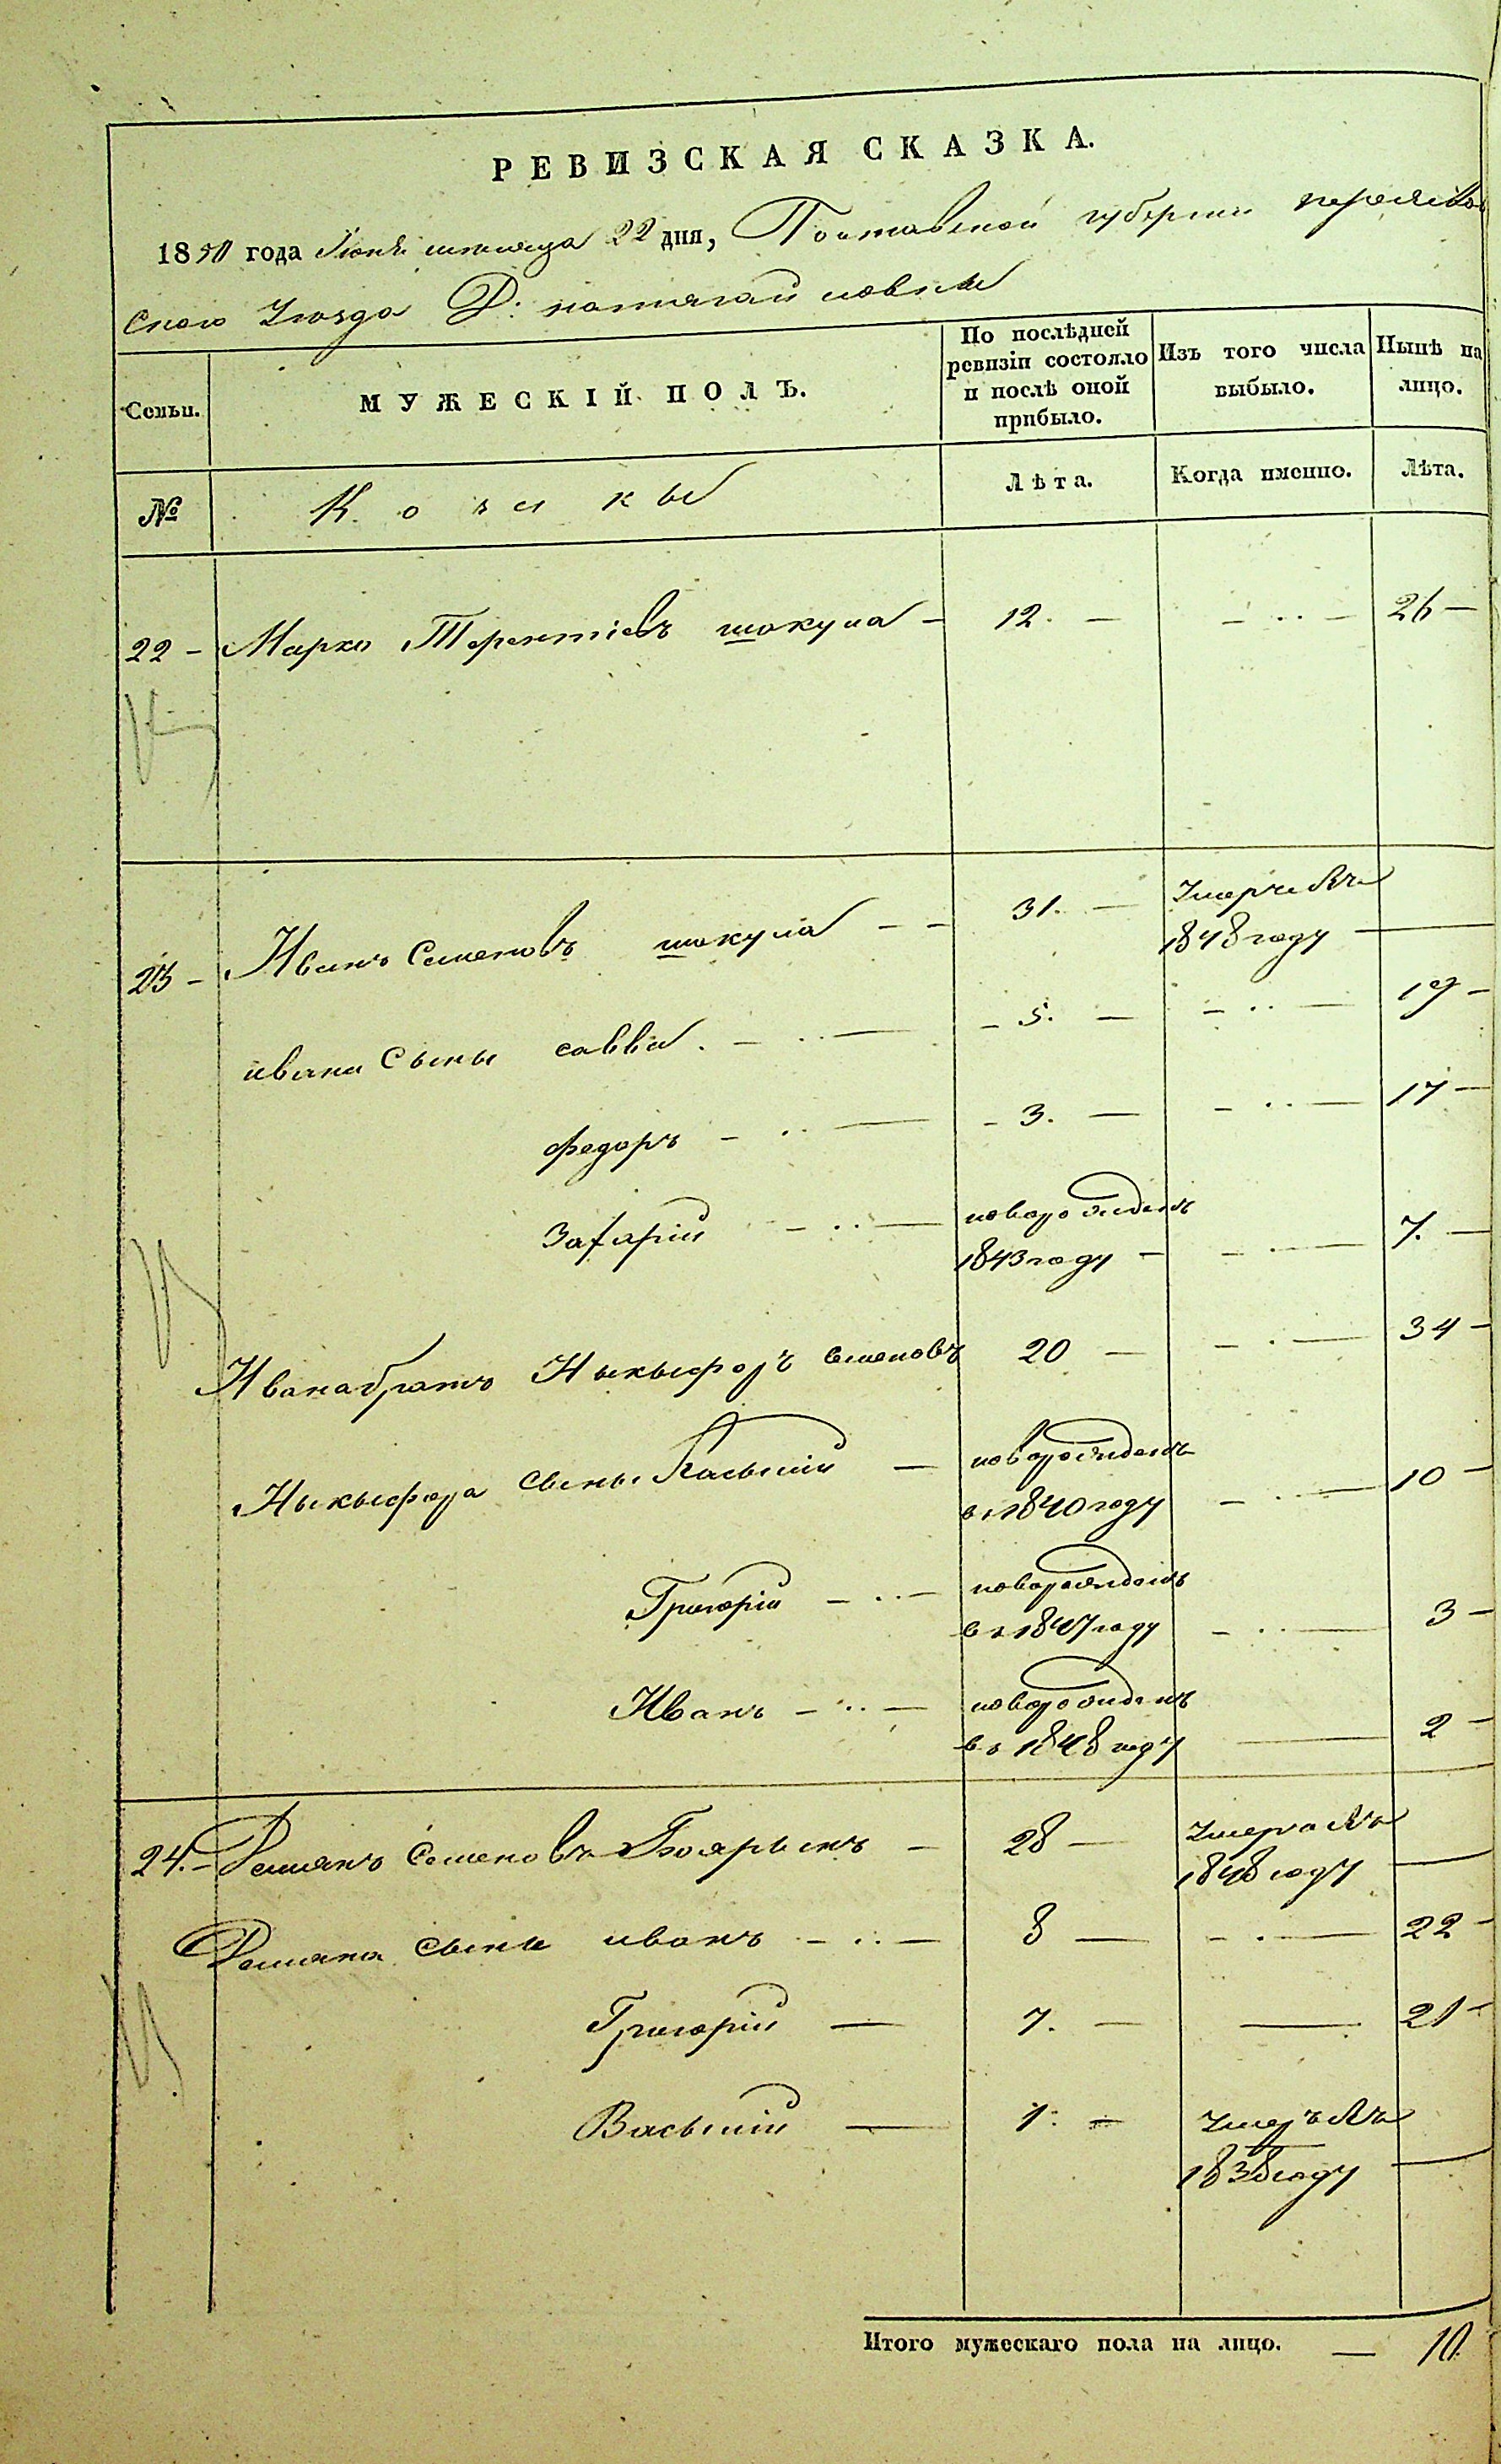 РЕВИЗСКАЯ СКАЗКА.
1850 года Июня месяца 22 дня, Полтавской губернии переяслов
ского Уезда Д:
Семьи.
МУЖЕСКІЙ ПОЛЪ.
По послѣдней ревизіи состояло и послѣ оной прибыло.
Изъ того числа выбыло.
Нынѣ на лицо.
№
Лѣта.
Когда именно.
Лѣта.
22 - Марко Терентіевъ шокула - 12. - - .. - 26 -
23 - Иванъ Семеновъ шокула - - 31. - Умеръ въ
1848 году -
ивана сыны савва . - .. - - 5. - - .. - 19 -
федоръ - .. - - 3. - - .. - 17 -
Захарій - .. - новорожденъ
1843 году - - . - 7. -
Ивана братъ Ныкыфоръ семеновъ 20 - - . - 34 -
Ныкыфора сыны Васылій - новорожденъ
въ 1840 году - . - 10 -
Григорій - .. - новорожденъ
въ 1847 году - .. - 3 -
Иванъ - .. - новорожденъ
въ 1848 году - 2 -
24. - Демянъ Семеновъ Боярынъ - 28 - Умеръ въ
1848 году -
Демяна сыны иванъ - .. - 8 - - . - 22 -
Григорій - 7. - - 21 -
Васылій - 1. - Умеръ въ
1838 году -
Итого мужескаго пола на лицо. - 10.